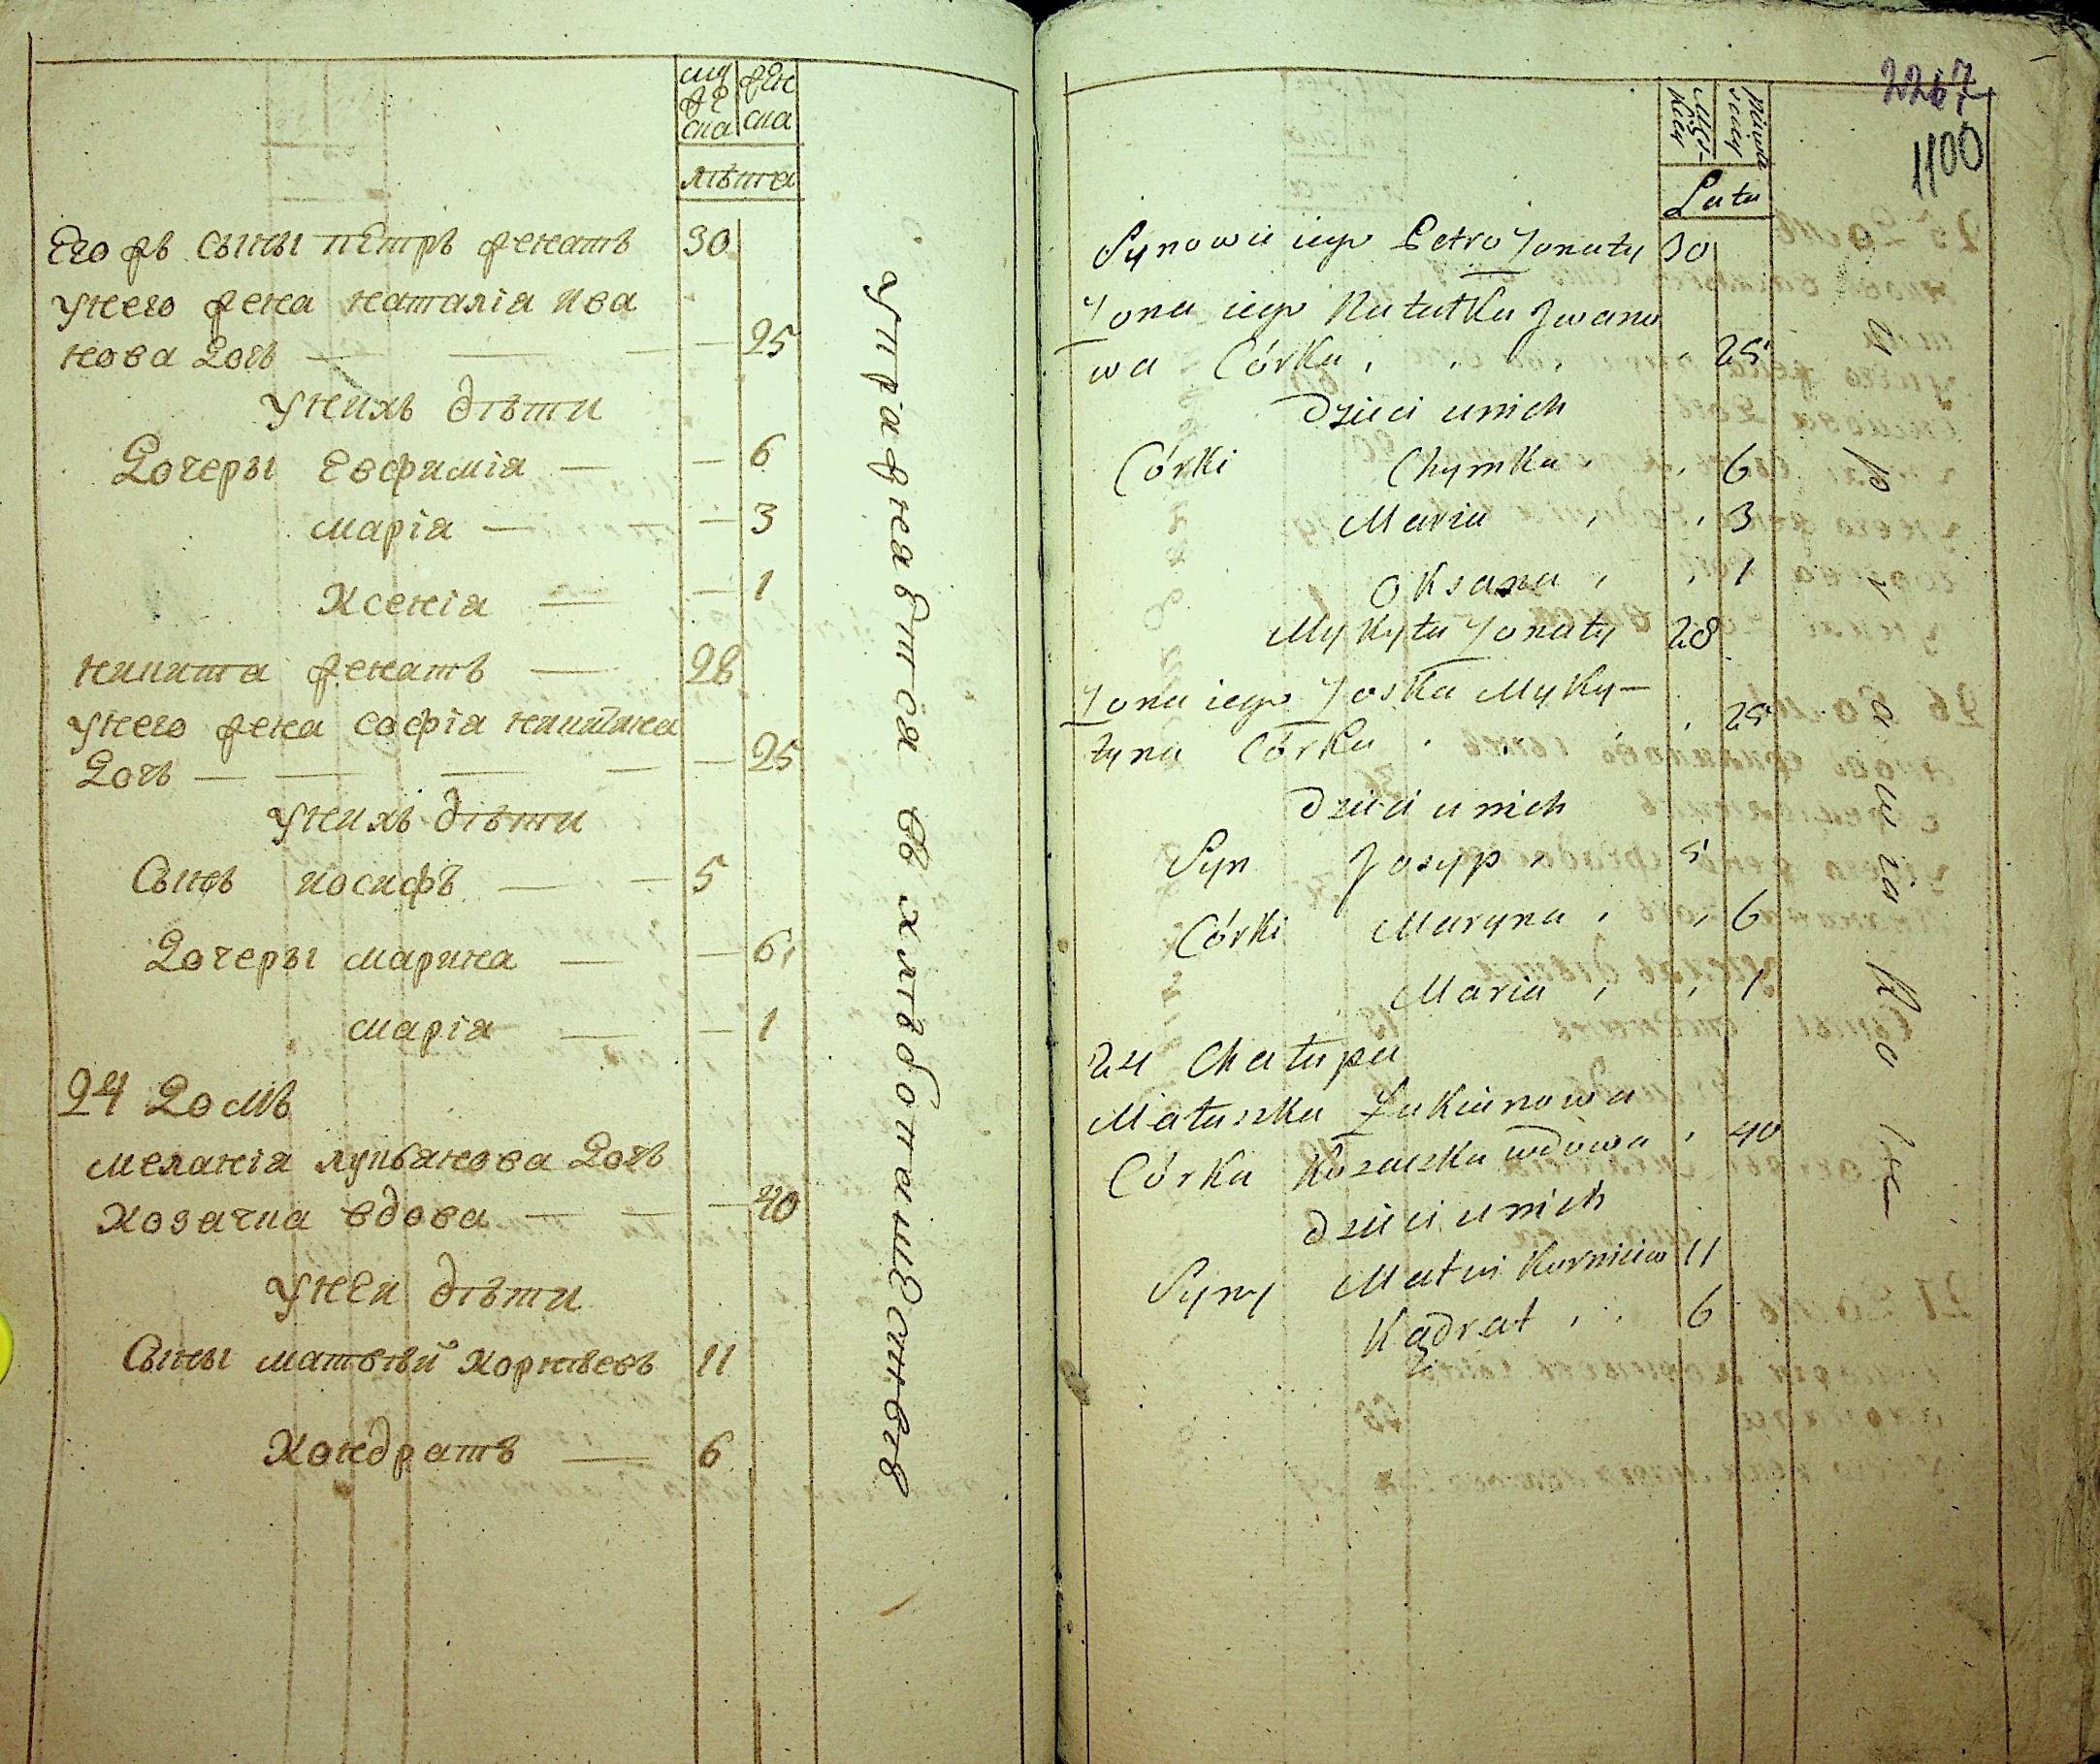 муже
ска
жен
ска
лѣта
Его жъ сыны петръ женатъ 30
унего жена наталіа ива
нова дочь — — — — 25
унихъ дѣти
Дочеры Евфиміа — — 6
маріа — — 3
Ксеніа — — 1
никита женатъ — 28
унего жена софіа никитина
дочь — — — — — 25
унихъ дѣти
Сынъ иосифъ — — 5
Дочеры марина — — 6
маріа — — 1
24 домъ
меланіа лукьанова дочь
козачка вдова — — — 40
уней дѣти
Сыны матвѣй корнѣевъ 11
кондратъ — 6
упражнаются въ хлѣбопашествѣ
2267
1100
Męs-
kiey
Lata
Synowie iego Petro Żonaty 30
Żona iego Natałka Iwano
wa Córka 25
dzieci unich
Córki Chymka 6
Maria 3
Oksana 1
Mykyta Żonaty 28
Żona iego Zoska Myky-
tyna Córka 25
dzieci unich
Syn Josyp 5
Córki Maryna 6
Maria 1
24 Chałupa
Małaszka Łukianowa
Córka Kozaczka wdowa 40
dzieci unich
Syny Matwi Korniiew 11
Kądrat 6